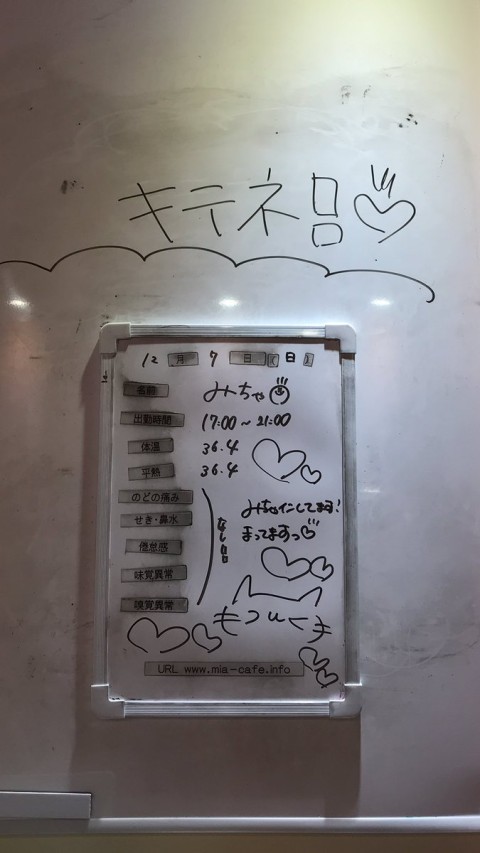 キテネ
12 月 7 日 (日)
名前 みちゃ
出勤時間 17:00 ~ 21:00
体温 36.4
平熱 36.4
のどの痛み
せき・鼻水
倦怠感
味覚異常
嗅覚異常
なし
みちゃインしてます!
まってますっ
URL www.mia-cafe.info